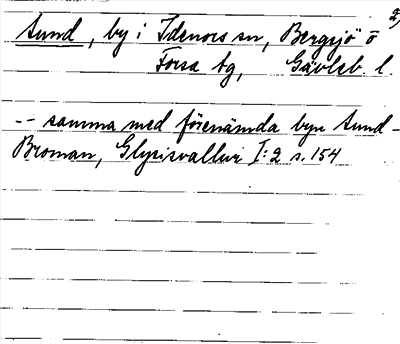 2)
Sund, by i Idenors sn, Bergsjö o
Forsa tg, Gävleb. l.
-- samma med förenämda byn Sund -
Broman, Glysisvallur I:2 s. 154